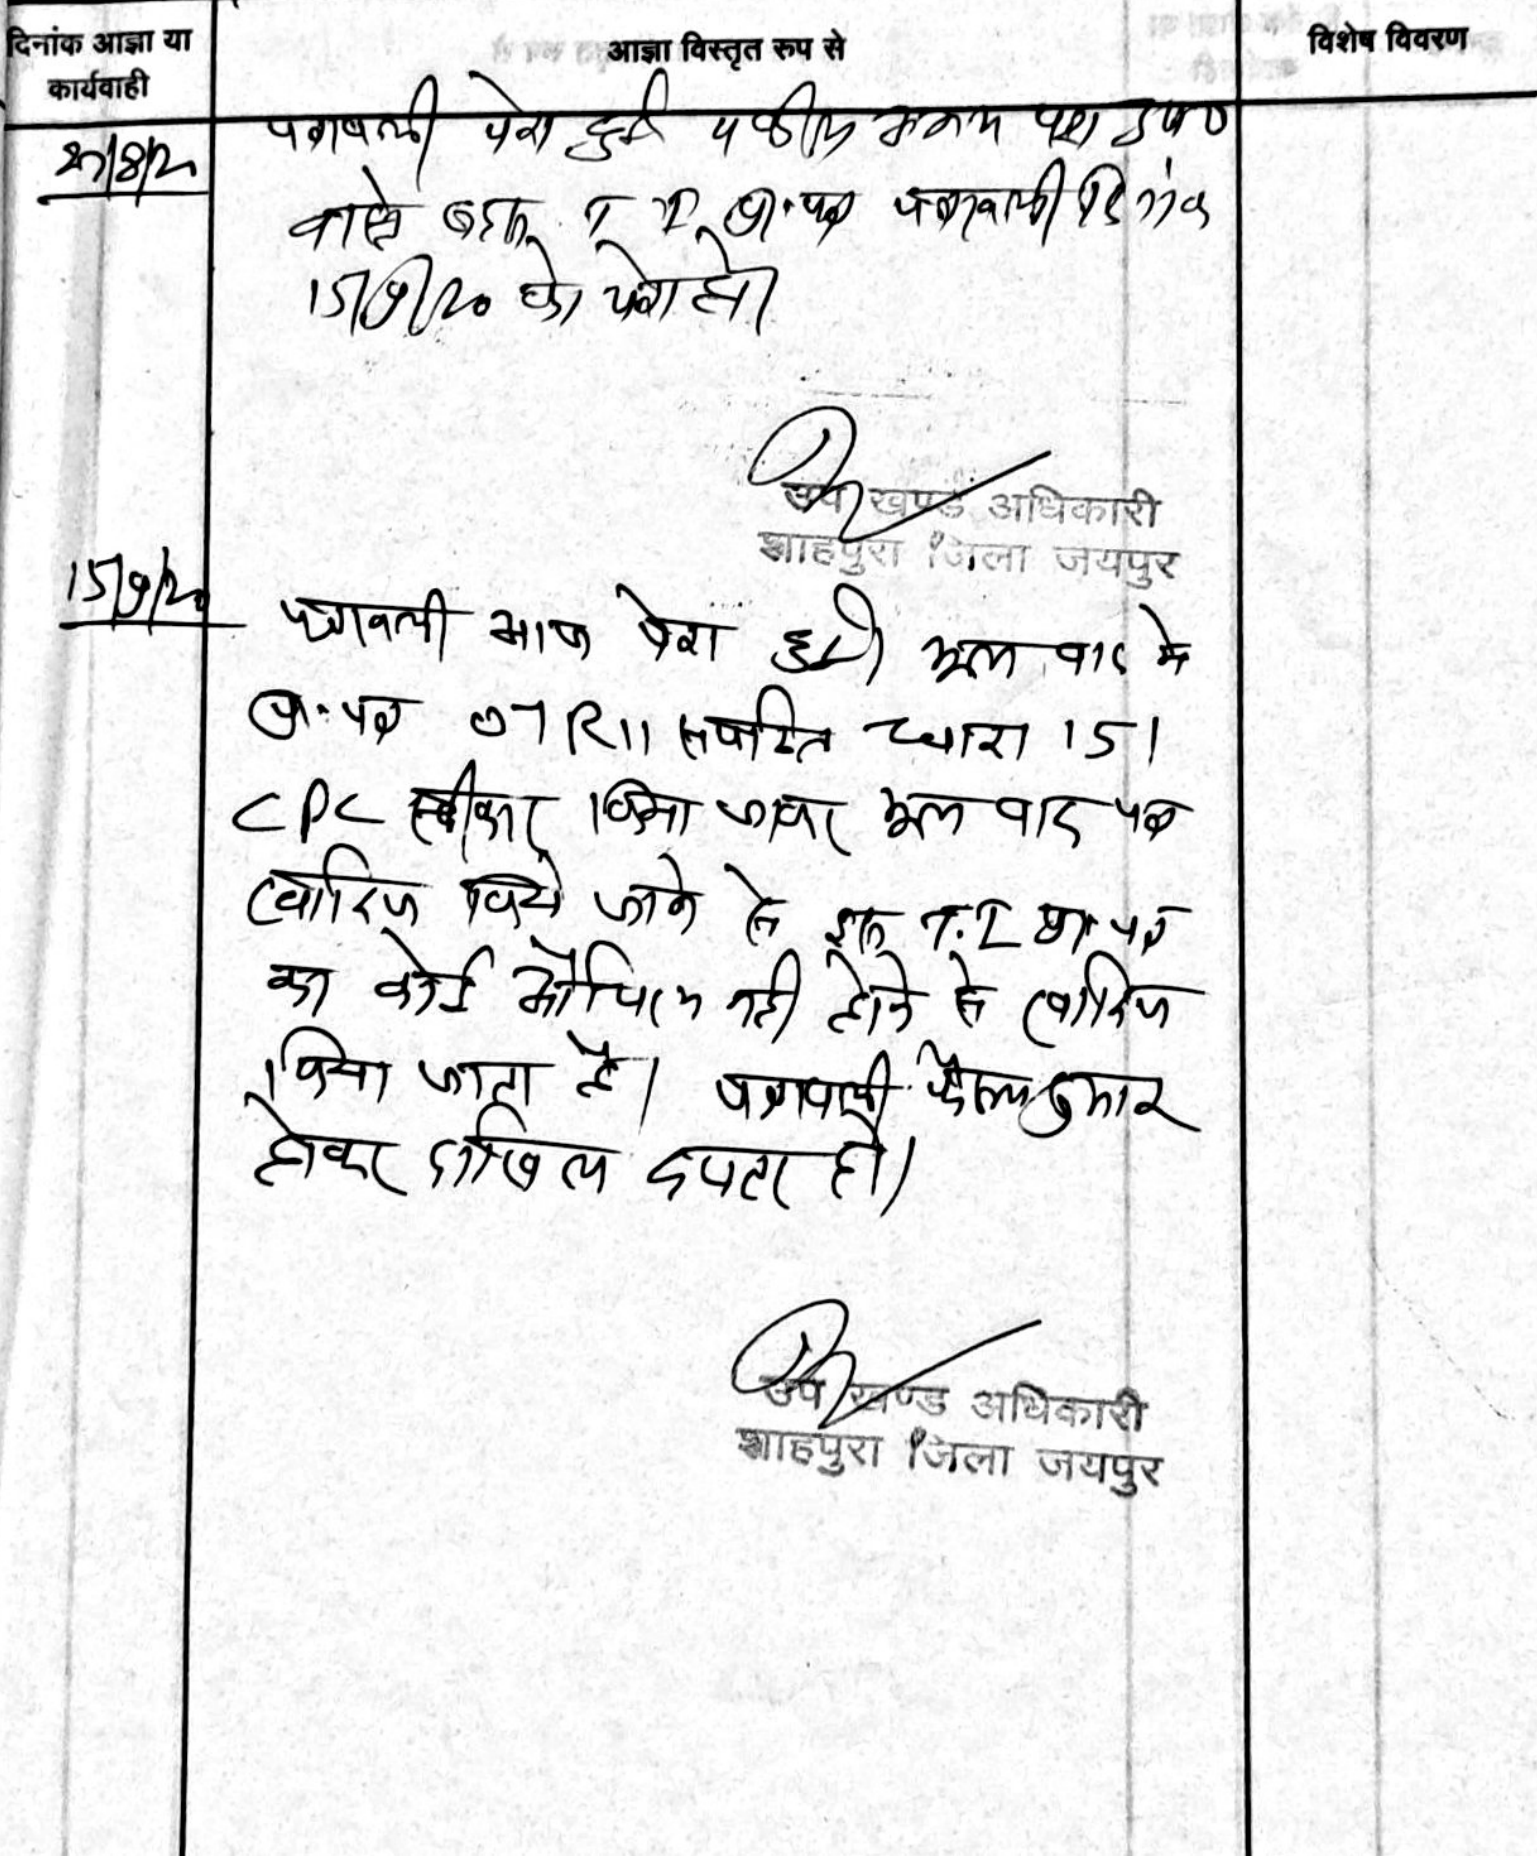 दिनांक आज्ञा या
कार्यवाही
आज्ञा विस्तृत रूप से
विशेष विवरण
पत्रावली पेश हुई
वास्ते बहस T I प्रा.पत्र पत्रावली दिनांक
15/9/20 को पेश हो।
उप खण्ड अधिकारी
शाहपुरा जिला जयपुर
15/9/20
पत्रावली आज पेश हुयी मूल वाद में
प्रा.पत्र O7 R11 सपठित धारा 151
CPC स्वीकार किया जाकर मूल वाद पत्र
खारिज किये जाने से इस T.I प्रा.पत्र
का कोई औचित्य नही होने से खारिज
किया जाता है। पत्रावली फैसल शुमार
होकर दाखिल दफ्तर हो।
उप खण्ड अधिकारी
शाहपुरा जिला जयपुर